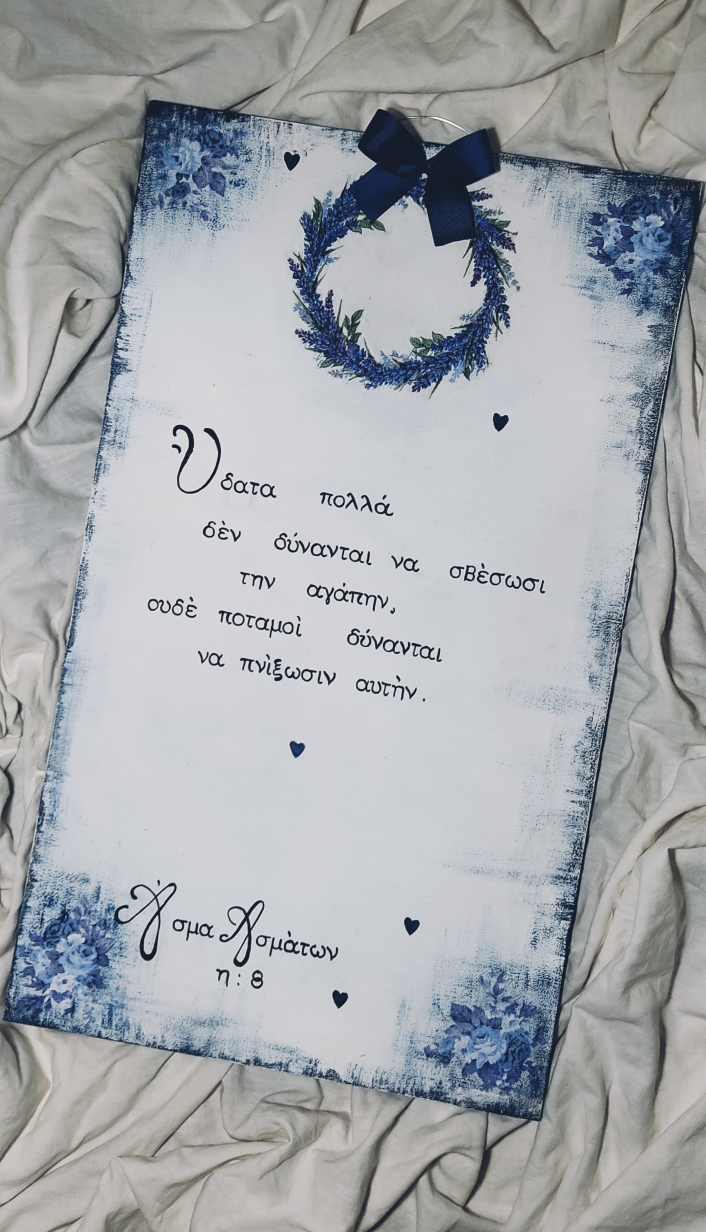 Υδατα πολλά
δὲν δύνανται να σβὲσωσι
την αγάπην,
ουδὲ ποταμοὶ δύνανται
να πνὶξωσιν αυτὴν.
Ἀσμα Ασμὰτων
η : 8